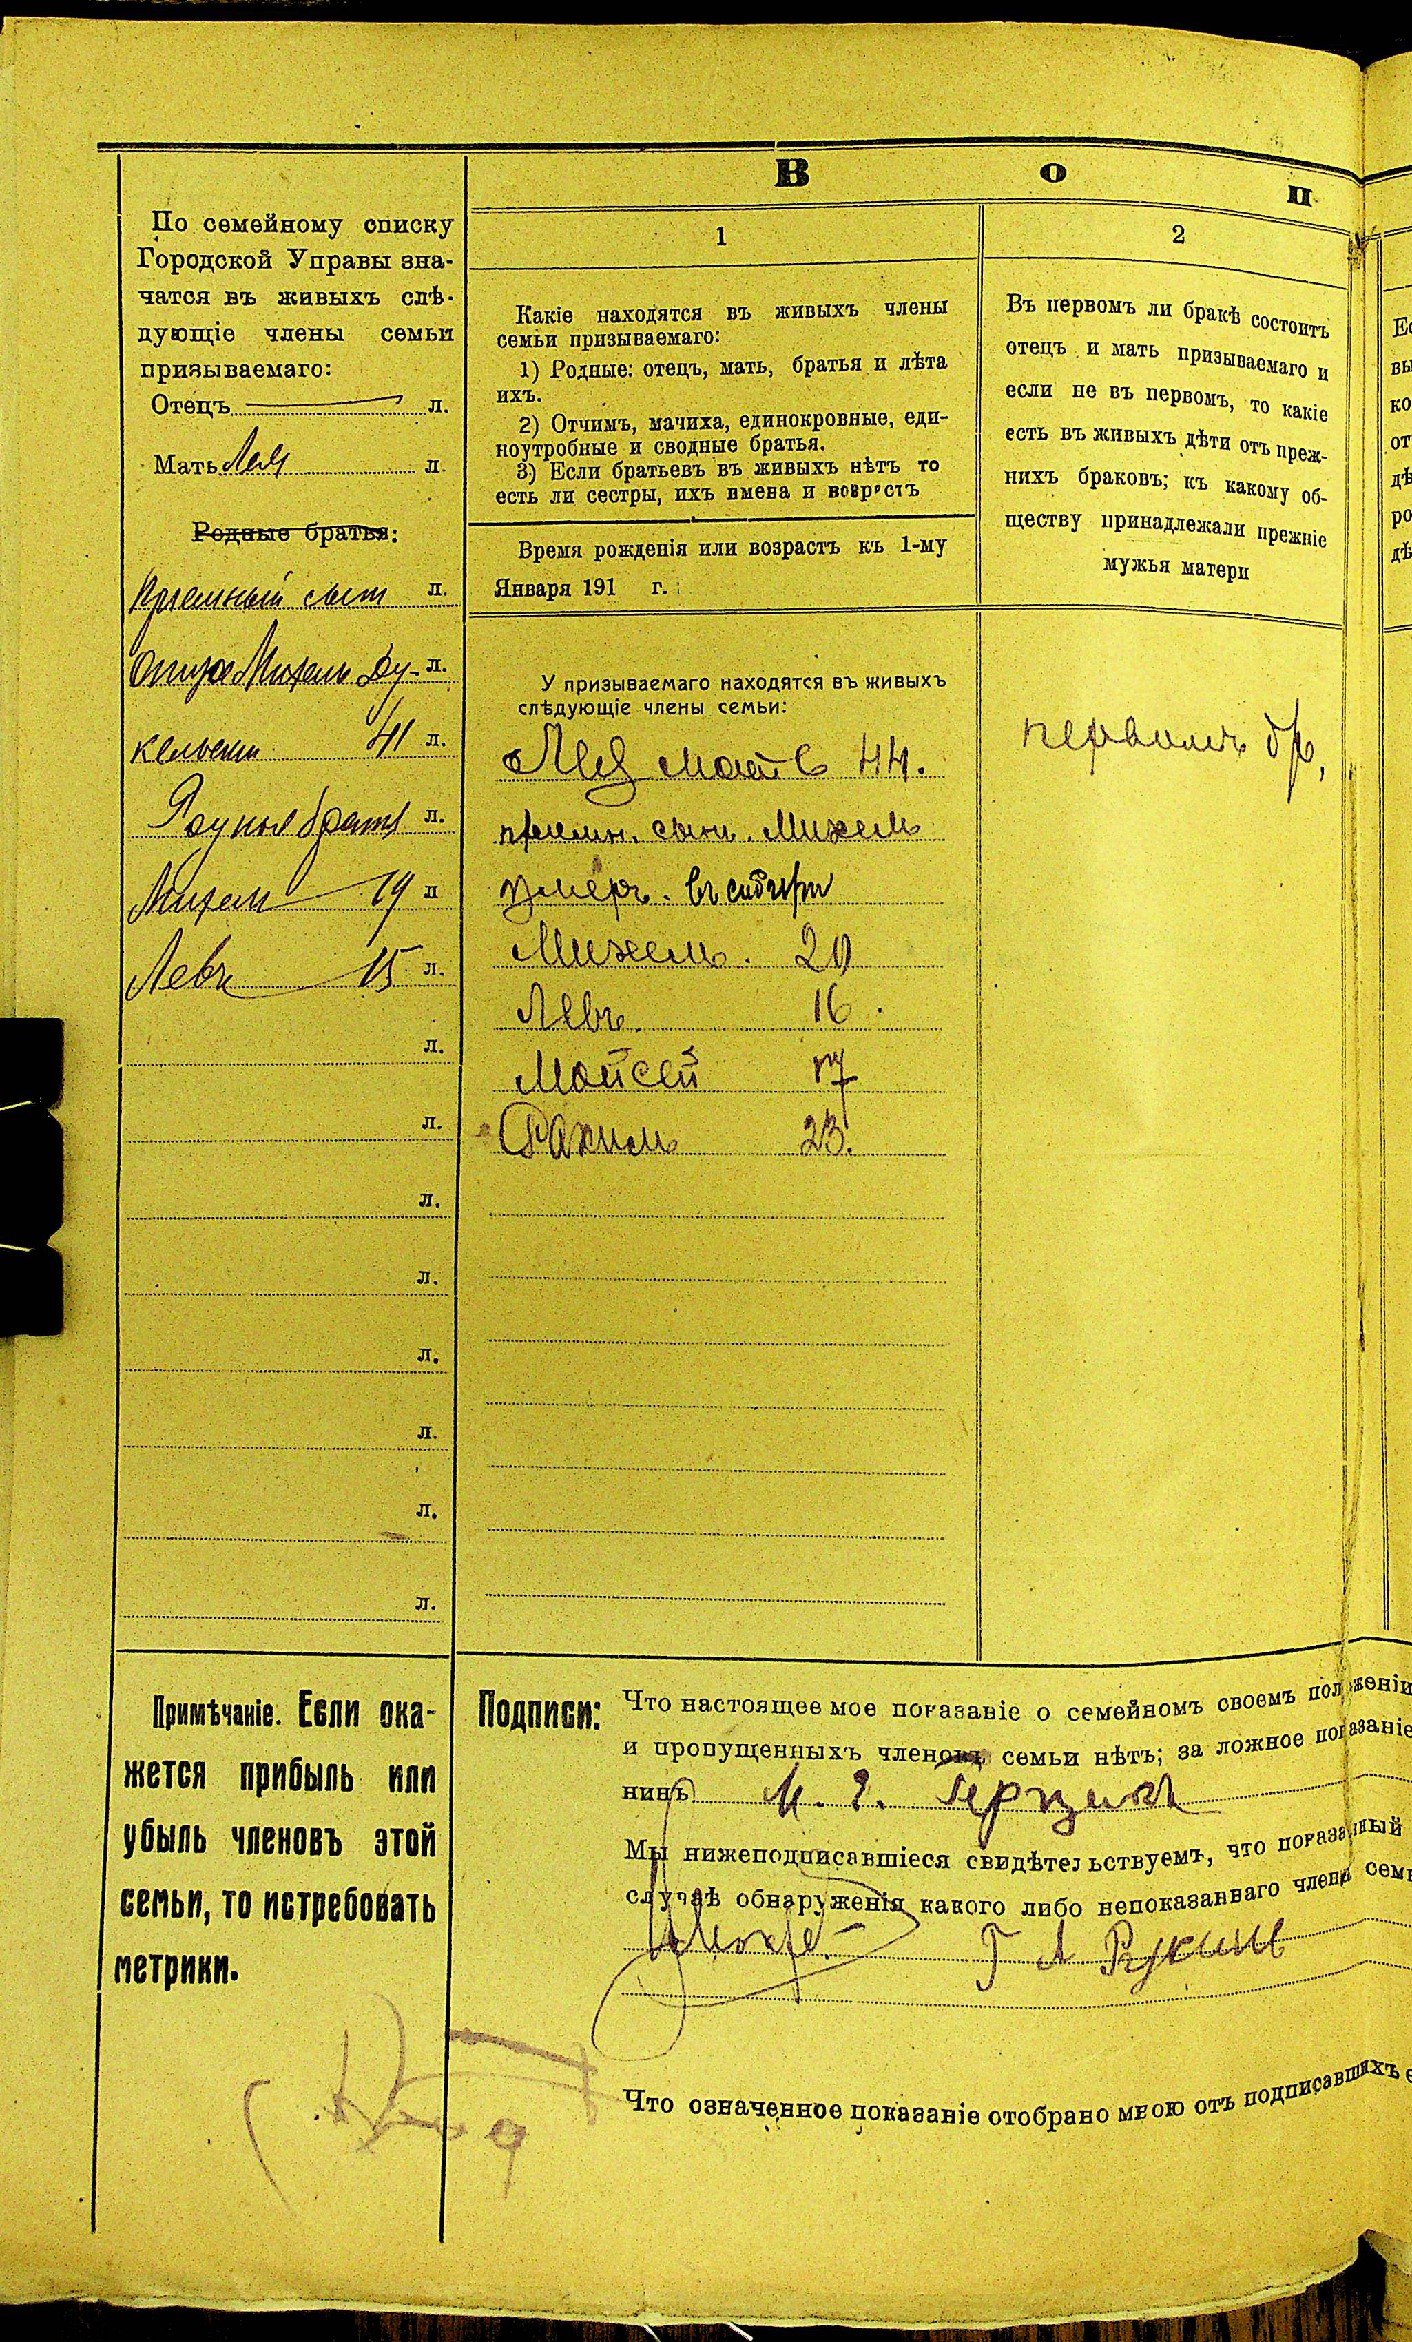 В о п
По семейному списку
Городской Управы зна-
чатся въ живыхъ слѣ-
дующіе члены семьи
призываемаго:
Отецъ л.
Мать Лея л.
Родные братья:
Пріемный сынъ л.
отца Михель Ду- л.
кельскій 41 л.
Родные братья л.
Михель 19 л
Левъ 15 л.
л.
л.
л.
л.
л.
л.
л.
л.
1
Какіе находятся въ живыхъ члены
семьи призываемаго:
1) Родные: отецъ, мать, братья и лѣта
ихъ.
2) Отчимъ, мачиха, единокровные, еди-
ноутробные и сводные братья.
3) Если братьевъ въ живыхъ нѣтъ то
есть ли сестры, ихъ имена и возрастъ
Время рожденія или возрастъ къ 1-му
Января 191 г.
У призываемаго находятся въ живыхъ
слѣдующіе члены семьи:
Лея мать 44.
пріемн. сынъ. Михель
умеръ.
Михель. 20
Левъ. 16
Мойсей 17
Рахиль 23.
2
Въ первомъ ли бракѣ состоитъ
отецъ и мать призываемаго и
если не въ первомъ, то какіе
есть въ живыхъ дѣти отъ преж-
нихъ браковъ; къ какому об-
ществу принадлежали прежніе
мужья матери
первомъ бр,
Примѣчаніе. Если ока-
жется прибыль или
убыль членовъ этой
семьи, то истребовать
метрики.
Подписи: Что настоящее мое показаніе о семейномъ своемъ положеніи
и пропущенныхъ членовъ семьи нѣтъ; за ложное показаніе
нинъ М. Г.
Мы нижеподписавшіеся свидѣтельствуемъ, что показанный
случаѣ обнаруженія какого либо непоказаннаго члена семь
Г А
Что означенное показаніе отобрано мною отъ подписавшихъ е